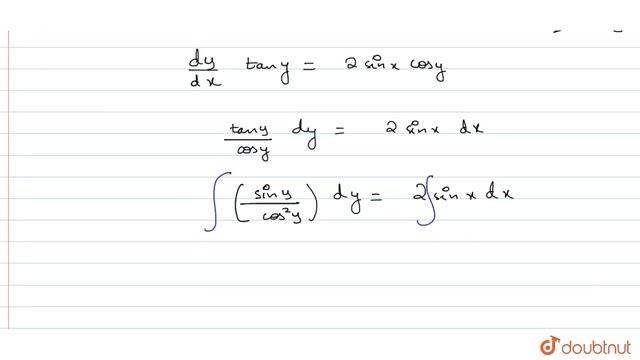 dy/dx tan y = 2 sin x cos y
tan y/cos y dy = 2 sin x dx
∫ (sin y/cos²y) dy = 2∫ sin x dx
doubtnut